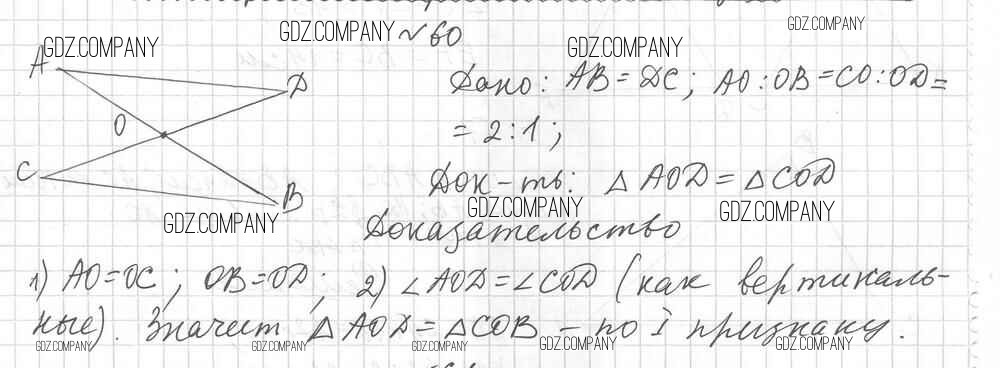 GDZ.COMPANY GDZ.COMPANY № 60 GDZ.COMPANY GDZ.COMPANY
A D O C B
Дано: AB = DC; AO:OB = CO:OD =
= 2:1;
Док-ть: △ AOD = △ COD
GDZ.COMPANY GDZ.COMPANY GDZ.COMPANY
Доказательство
1) AO=OC; OB=OD; 2) ∠AOD=∠COD (как вертикаль-
ные). Значит △ AOD = △COB – по I признаку.
GDZ.COMPANY GDZ.COMPANY GDZ.COMPANY GDZ.COMPANY GDZ.COMPANY